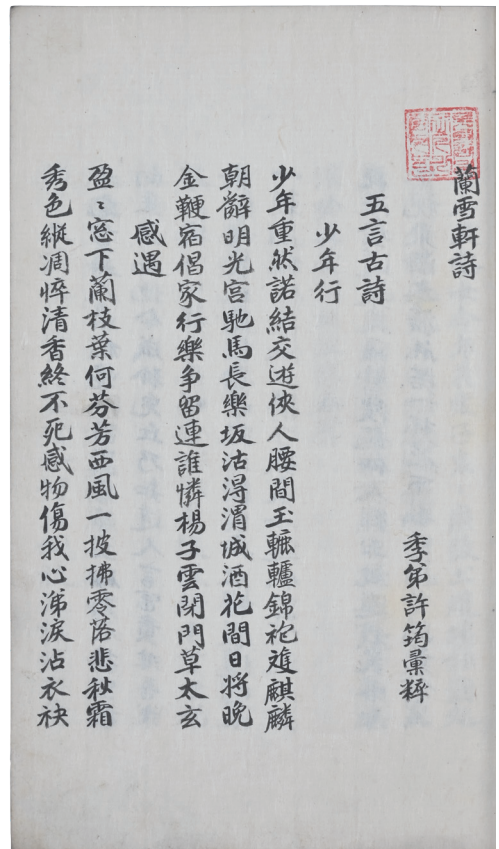 蘭雪軒詩
季弟許筠彙粹
五言古詩
少年行
少年重然諾結交遊俠人腰間玉轆轤錦袍䨇麒麟
朝辭明光宮馳馬長樂坂沽得渭城酒花間日將晩
金鞭宿倡家行樂爭留連誰憐楊子雲閉門草太玄
感遇
盈〻窓下蘭枝葉何芬芳西風一披拂零落悲秋霜
秀色縱凋悴清香終不死感物傷我心涕淚沾衣袂